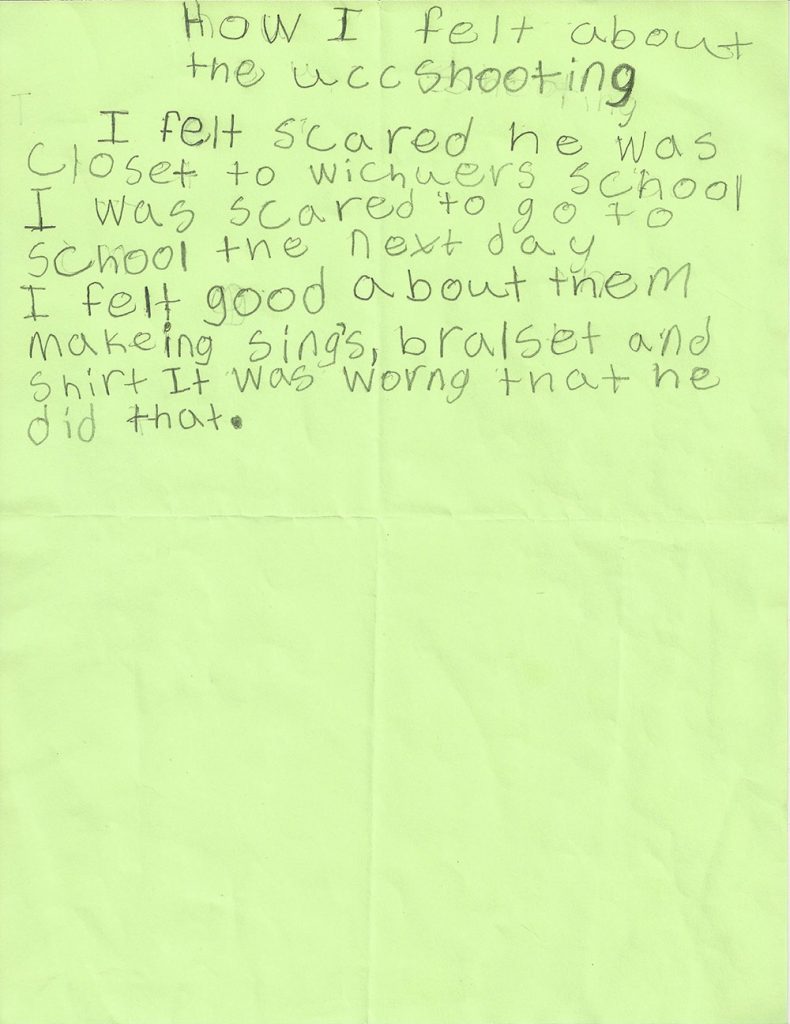 How I felt about
the uccshooting
I felt scared he was
closet to wichuers school
I was scared to go to
school the next day
I felt good about them
makeing sings, bralset and
shirt It was worng that he
did that.